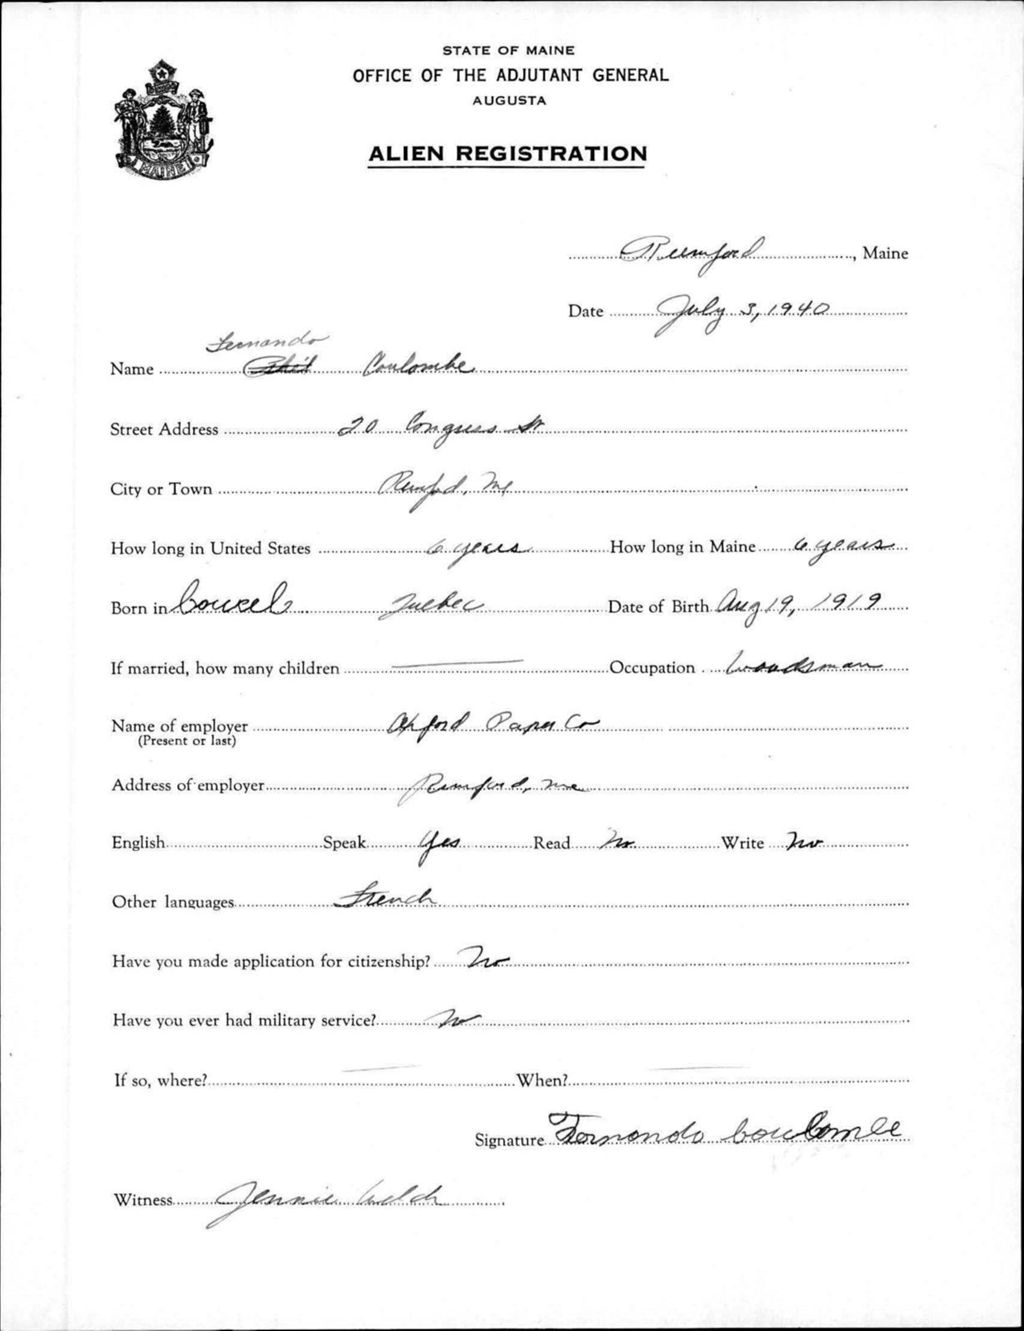 STATE OF MAINE
OFFICE OF THE ADJUTANT GENERAL
AUGUSTA
ALIEN REGISTRATION
Rumford, Maine
Date July 3, 1940
Fernando
Name Phil Coulombe
Street Address 20 Congress St
City or Town Rumford, Me
How long in United States 6 years How long in Maine 6 years
Born in Quebec Date of Birth Aug 19, 1919
If married, how many children — Occupation Woodsman
Name of employer Oxford Paper Co
(Present or last)
Address of employer Rumford, Me
English Speak Yes Read No Write No
Other languages French
Have you made application for citizenship? No
Have you ever had military service? No
If so, where? — When? —
Signature Fernando Coulombe
Witness Jennie Welch